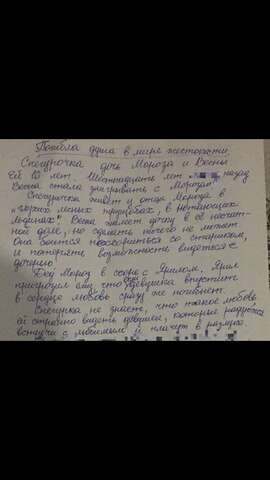 Погибла душа в мире жестокости
Снегурочка дочь Мороза и Весны
Ей 15 лет. Шестнадцать лет назад
Весна стала заигрывать с Морозом
Снегурочка живёт у отца Мороза в
"глухих лесных трущобах, в нетающих
льдинах". Весна жалеет дочку в её несчаст-
ной доле, но сделать ничего не может
Она боится поссориться со стариком,
и потерять возможность видеться с
дочерью
Дед Мороз в ссоре с Ярилом. Ярил
пригрозил ему что девушка впустит
в сердце любовь сразу же погибнет
Снегурка не знает, что такое любовь.
ей странно видеть девушек, которые радуются
встречи с любимым и плачут в разлуке.